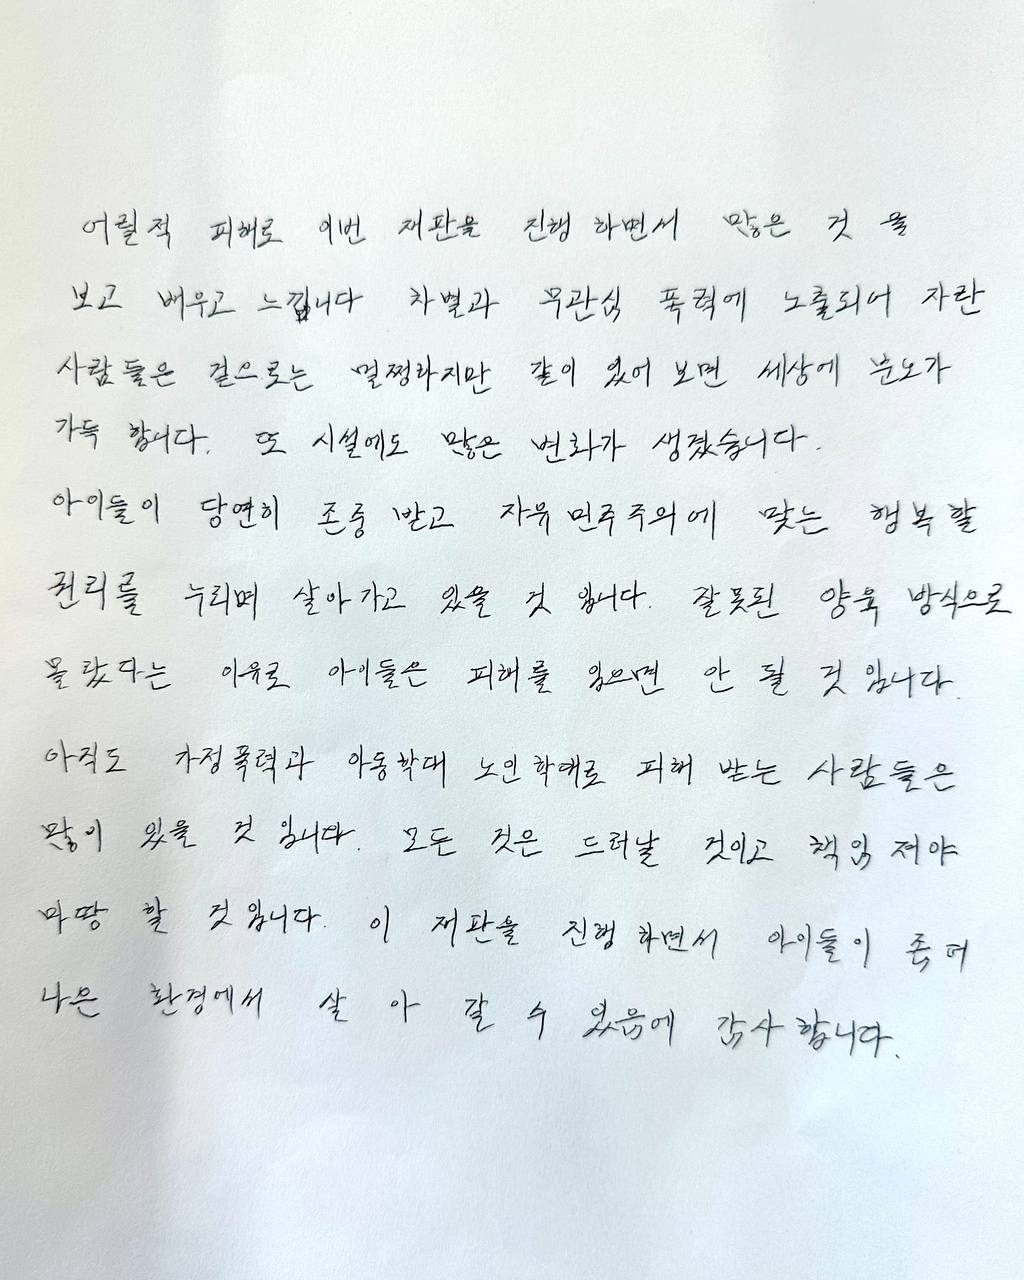 어릴적 피해로 이번 재판을 진행 하면서 많은 것 을
보고 배우고 느낍니다 차별과 무관심 폭력에 노출되어 자란
사람들은 겉으로는 멀쩡하지만 같이 있어 보면 세상에 분노가
가득 합니다. 또 시설에도 많은 변화가 생겼습니다.
아이들이 당연히 존중 받고 자유 민주주의에 맞는 행복할
권리를 누리며 살아가고 있을 것 입니다. 잘못된 양육 방식으로
몰랐다는 이유로 아이들은 피해를 입으면 안 될 것 입니다.
아직도 가정폭력과 아동학대 노인학대로 피해 받는 사람들은
많이 있을 것 입니다. 모든 것은 드러날 것이고 책임 져야
마땅 할 것입니다. 이 재판을 진행 하면서 아이들이 좀 더
나은 환경에서 살 아 갈 수 있음에 감사 합니다.